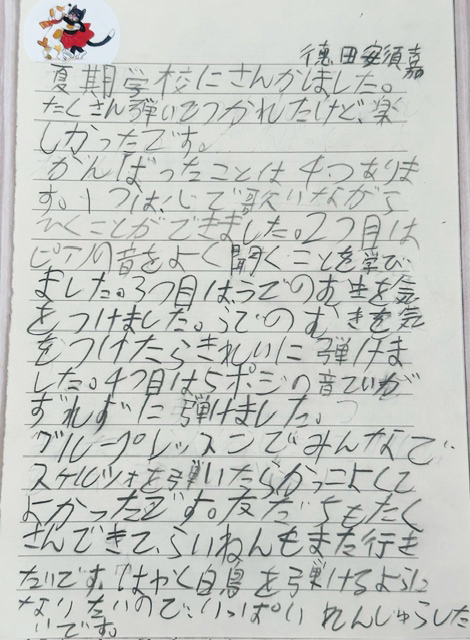 德田安須嘉
夏期学校にさんかしました。
たくさん弾いてつかれたけど、楽
しかったです。
がんばったことは4つありま
す。1つは、心で歌いながら
ひくことができました。2つ目は
ピアノの音をよく聞くことを学び
ました。3つ目は、うでのむきを気
をつけました。うでのむきを気
をつけたらきれいに弾けま
した。4つ目は5ポジの音ていが
ずれずに弾けました。
グループレッスンでみんなで
スケルツォを弾いたらかっこよくて
よかったです。友だちもたく
さんできて、らいねんもまた行き
たいです。はやく白鳥を弾けるように
なりたいので、いっぱいれんしゅうした
いです。